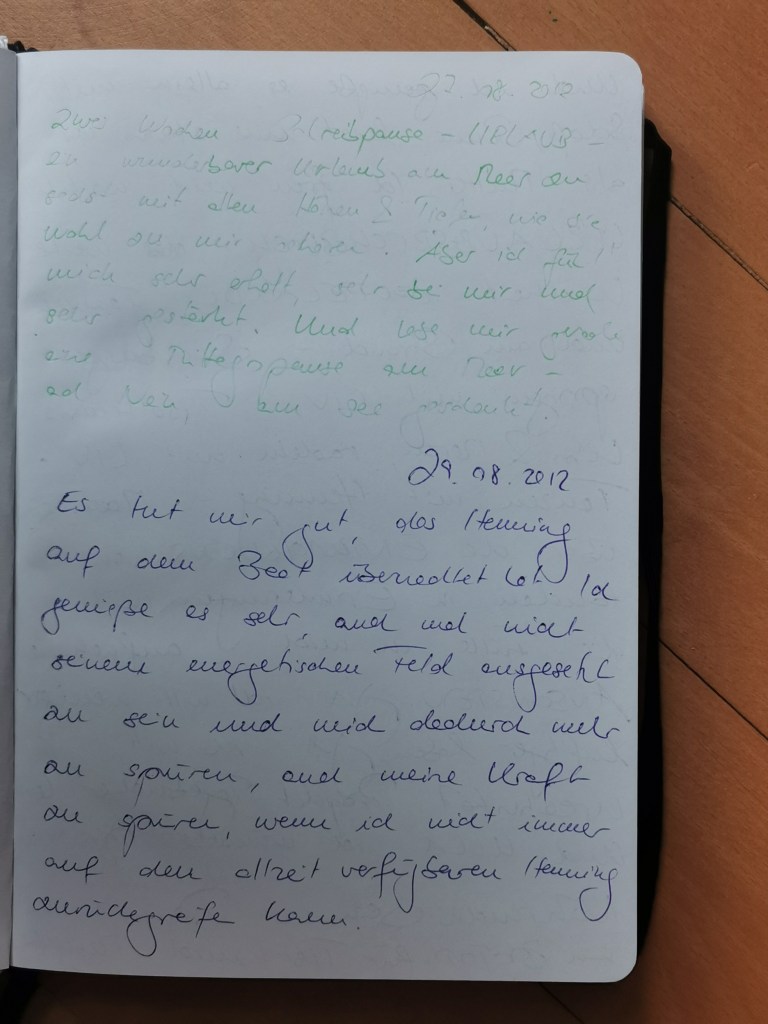 27.08.2012
Zwei Wochen Schreibpause - URLAUB -
ein wunderbarer Urlaub am Meer zu
mit allen Höhen & Tiefen, wie sie
wohl zu mir gehören. Aber ich fühl
mich sehr erholt, sehr bei mir und
sehr gestärkt. Und lese mir gerade
eine Mittagspause am Meer -
ach Nein,
29.08.2012
Es tut mir gut, das Henning
auf dem Boot übernachtet hat. Ich
genieße es sehr, auch mal nicht
seinem energetischen Feld ausgesetzt
zu sein und mich dadurch mehr
zu spüren, auch meine Kraft
zu spüren, wenn ich nicht immer
auf den allzeit verfügbaren Henning
zurückgreife kann.